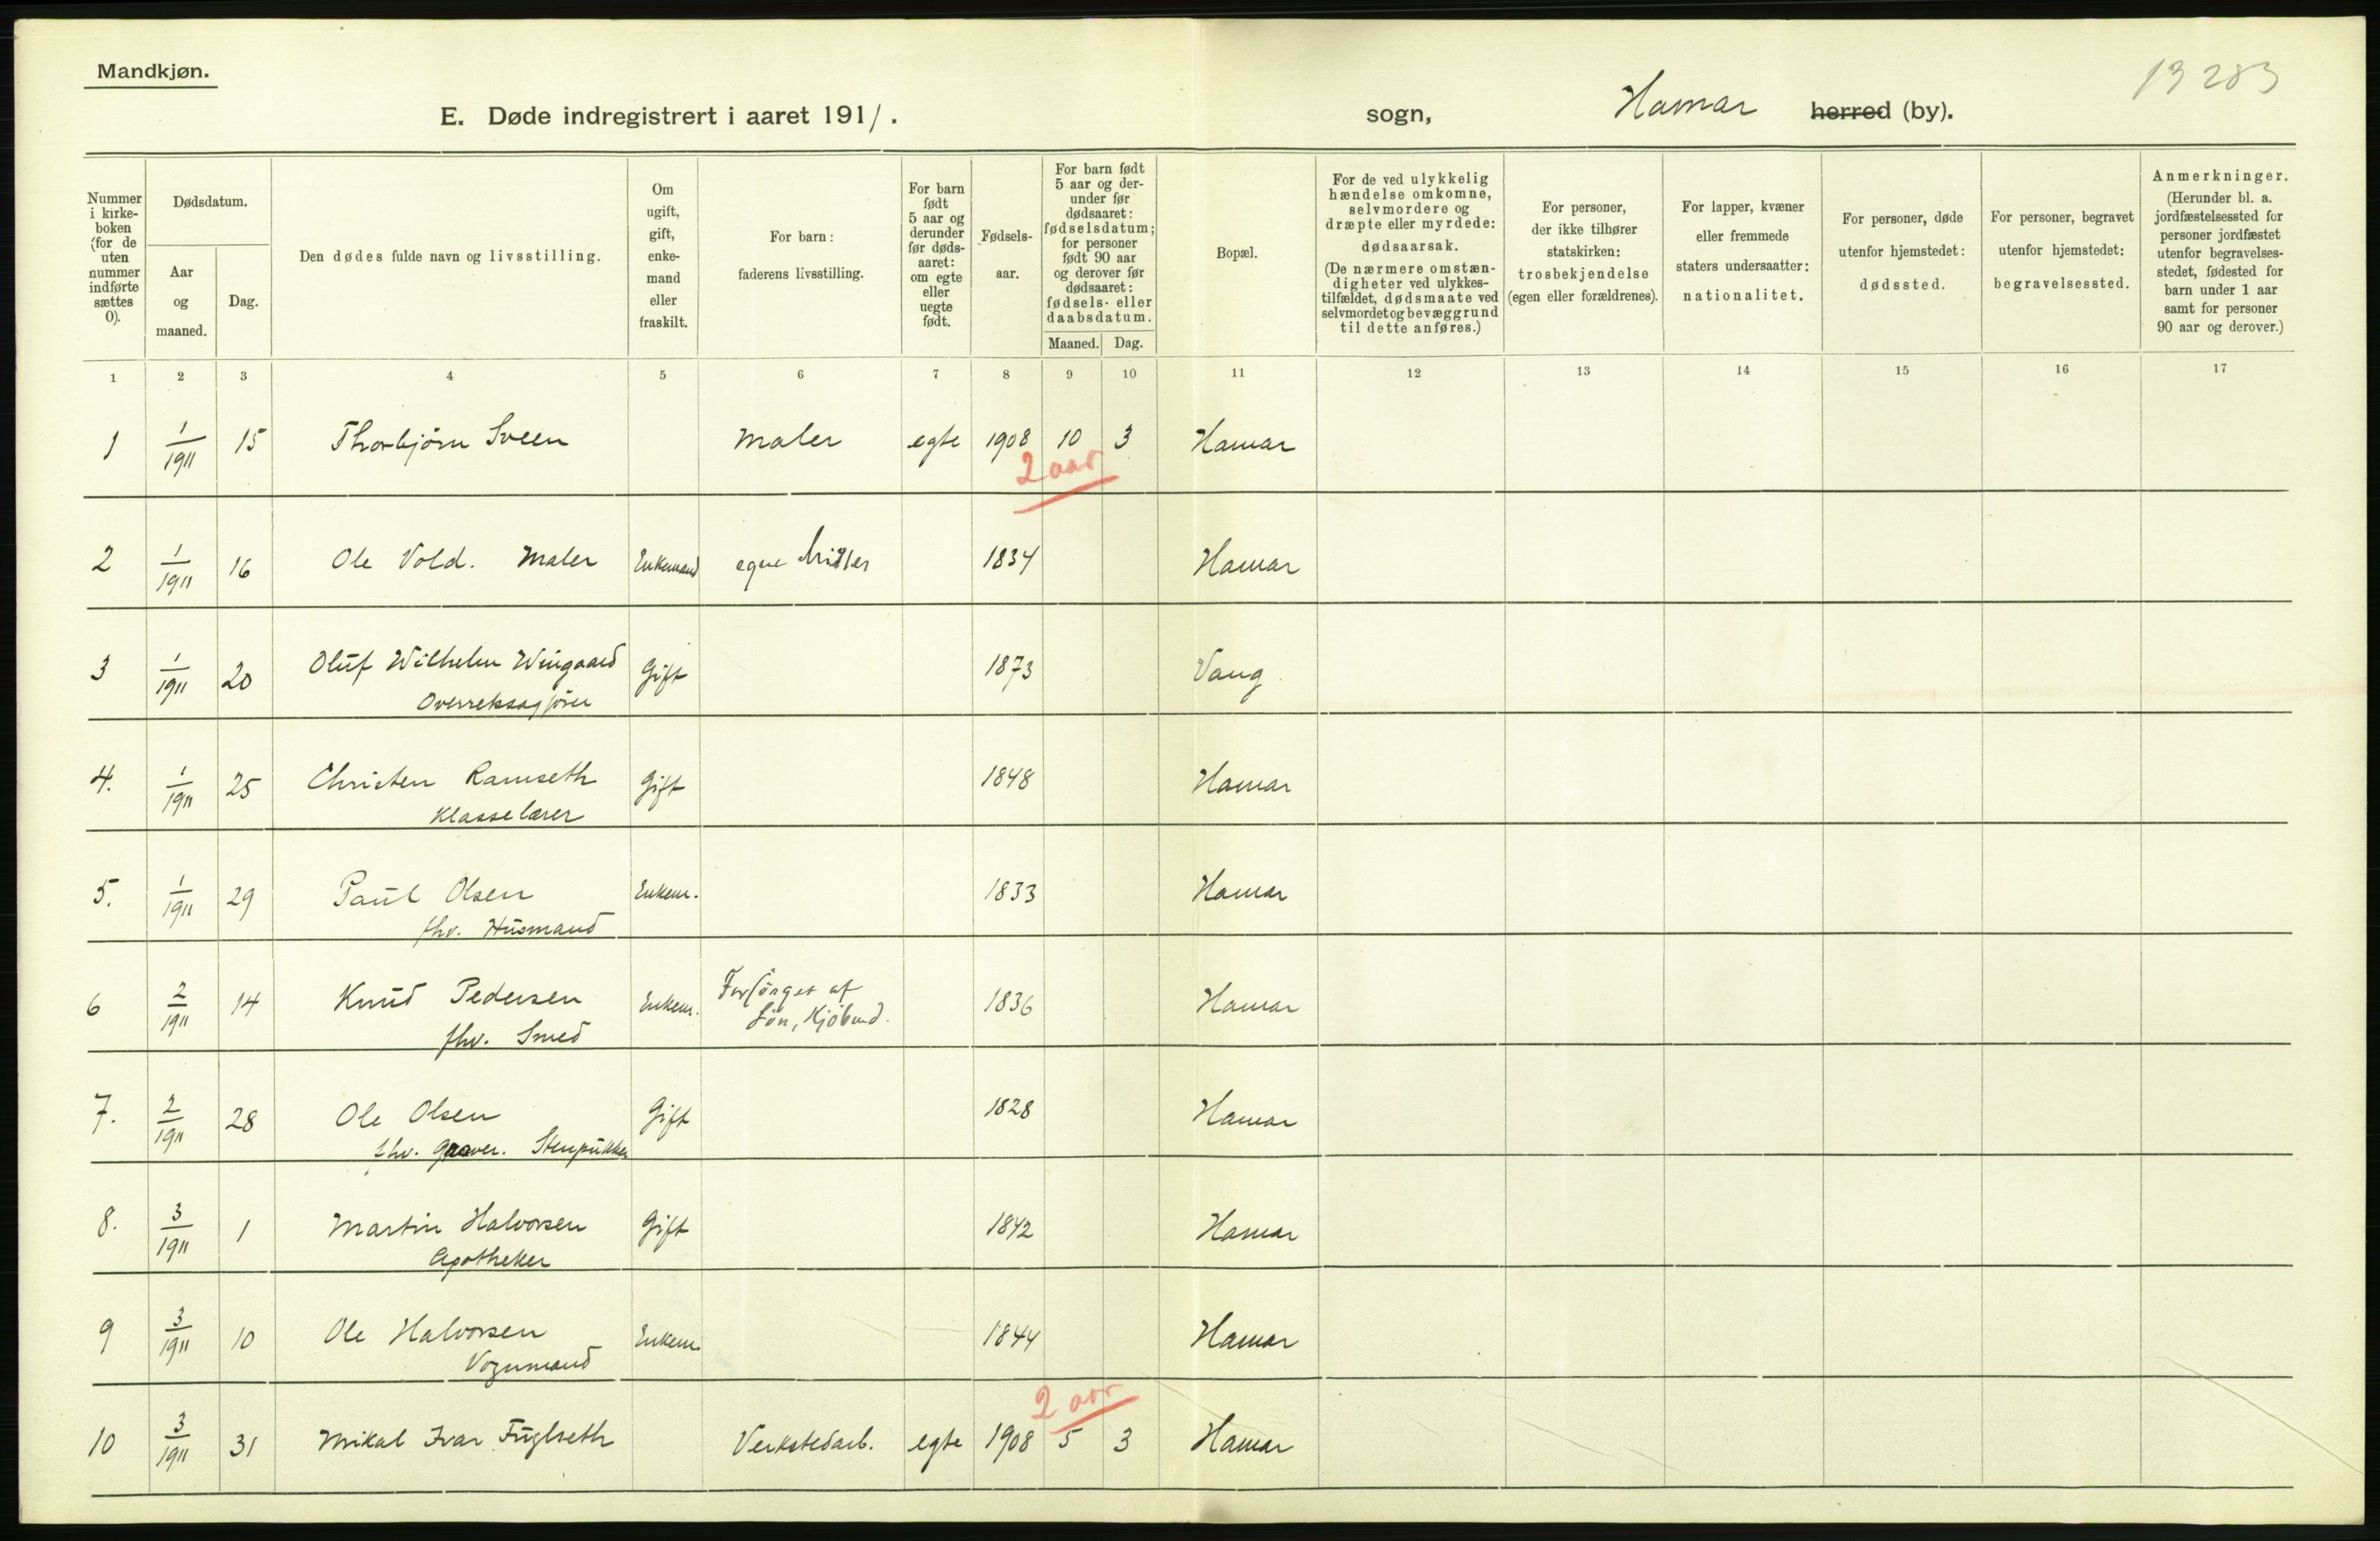 Mandkjøn.
13 283
E. Døde indregistrert i aaret 1911. sogn, Hamar herred (by).
Nummer i kirke-boken (for de uten nummer indførte sættes 0).
Dødsdatum.
Aar og maaned.
Dag.
Den dødes fulde navn og livsstilling.
Om ugift, gift, enke-mand eller fraskilt.
For barn: faderens livsstilling.
For barn født 5 aar og derunder før døds-aaret: om egte eller uegte født.
Fødsels-aar.
For barn født 5 aar og der-under før dødsaaret: fødselsdatum; for personer født 90 aar og derover før dødsaaret: fødsels- eller daabsdatum.
Maaned. Dag.
Bopæl.
For de ved ulykkelig hændelse omkomne, selvmordere og dræpte eller myrdede: dødsaarsak. (De nærmere omstæn-digheter ved ulykkes-tilfældet, dødsmaate ved selvmordet og bevæggrund til dette anføres.)
For personer, der ikke tilhører statskirken: trosbekjendelse (egen eller forældrenes).
For lapper, kvæner eller fremmede staters undersaatter: nationalitet.
For personer, døde utenfor hjemstedet: dødssted.
For personer, begravet utenfor hjemstedet: begravelsessted.
Anmerkninger. (Herunder bl. a. jordfæstelsessted for personer jordfæstet utenfor begravelses-stedet, fødested for barn under 1 aar samt for personer 90 aar og derover.)
1 2 3 4 5 6 7 8 9 10 11 12 13 14 15 16 17
1 1/1911 15 Thorbjørn Sveen Maler egte 1908 10 3 Hamar
2 aar
2 1/1911 16 Ole Vold. Maler Enkemand egne Midler 1834 Hamar
3 1/1911 20 Oluf Wilhelm Wingaard Gift 1873 Vang.
Overretssagfører
4. 1/1911 25 Christen Ramseth Gift 1848 Hamar
Klasselærer
5. 1/1911 29 Paul Olsen Enkem. 1833 Hamar
fhv. Husmand
6 2/1911 14 Knud Pedersen Enkem. Forsørget af 1836 Hamar
Søn, Kjøbmd.
fhv. Smed
7. 2/1911 28 Ole Olsen Gift 1828 Hamar
fhv. Stenpukker
8. 3/1911 1 Martin Halvorsen Gift 1842 Hamar
Apotheker
9 3/1911 10 Ole Halvorsen Enkem. 1844 Hamar
Vognmand
2 aar
10 3/1911 31 Mikal Ivar Fuglseth Verkstedarb. egte 1908 5 3 Hamar